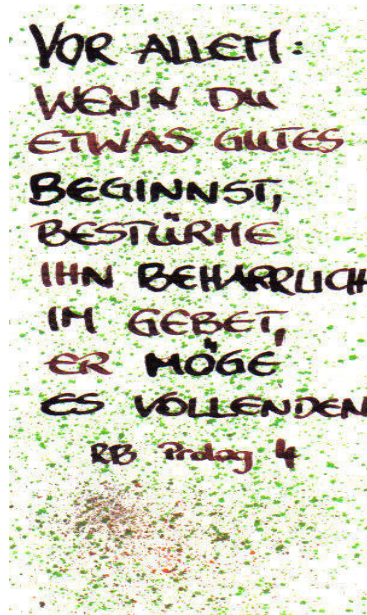 VOR ALLEM:
WENN DU
ETWAS GUTES
BEGINNST,
BESTÜRME
IHN BEHARRLICH
IM GEBET,
ER MÖGE
ES VOLLENDEN
RB Prolog 4